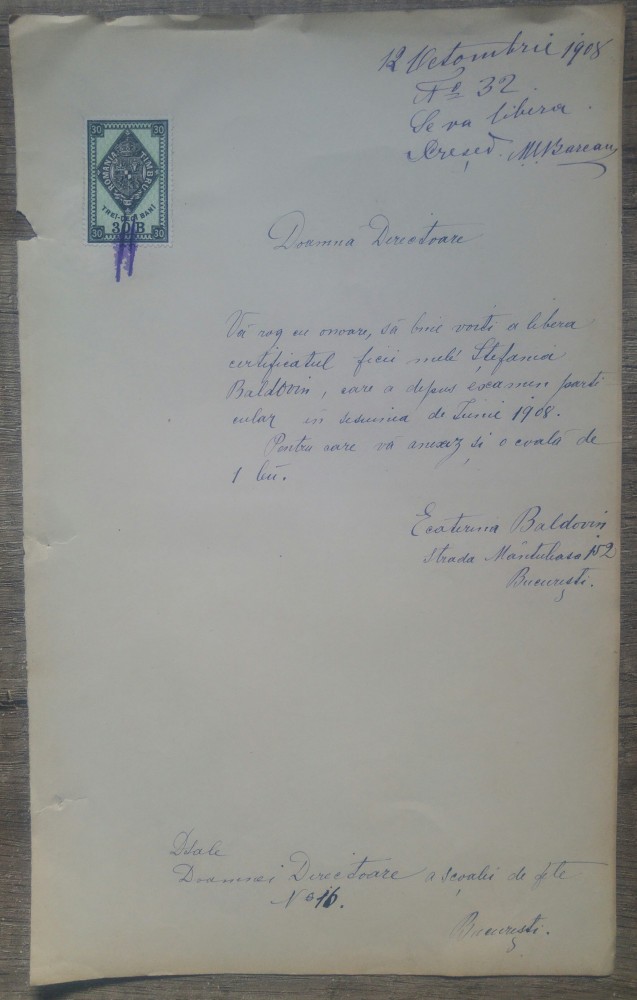 12 Octombrie 1908
No 32.
Se va libera.
30 30
ROMANIA TIMBRU
TREI-DECI BANI
30 B
30 30
Doamna Directoare
Vă rog cu onoare, să bine voiti a libera
certificatul ficii mele Ștefania
Baldovin, care a depus escamen parti
cular in sesiunea de Iunie 1908.
Pentru care vă anexez și o coală de
1 leu.
Ecaterina Baldovin
strada Mântuleasa
București.
Dsale
Doamnei Directoare a școalei de fete
No 16.
București.